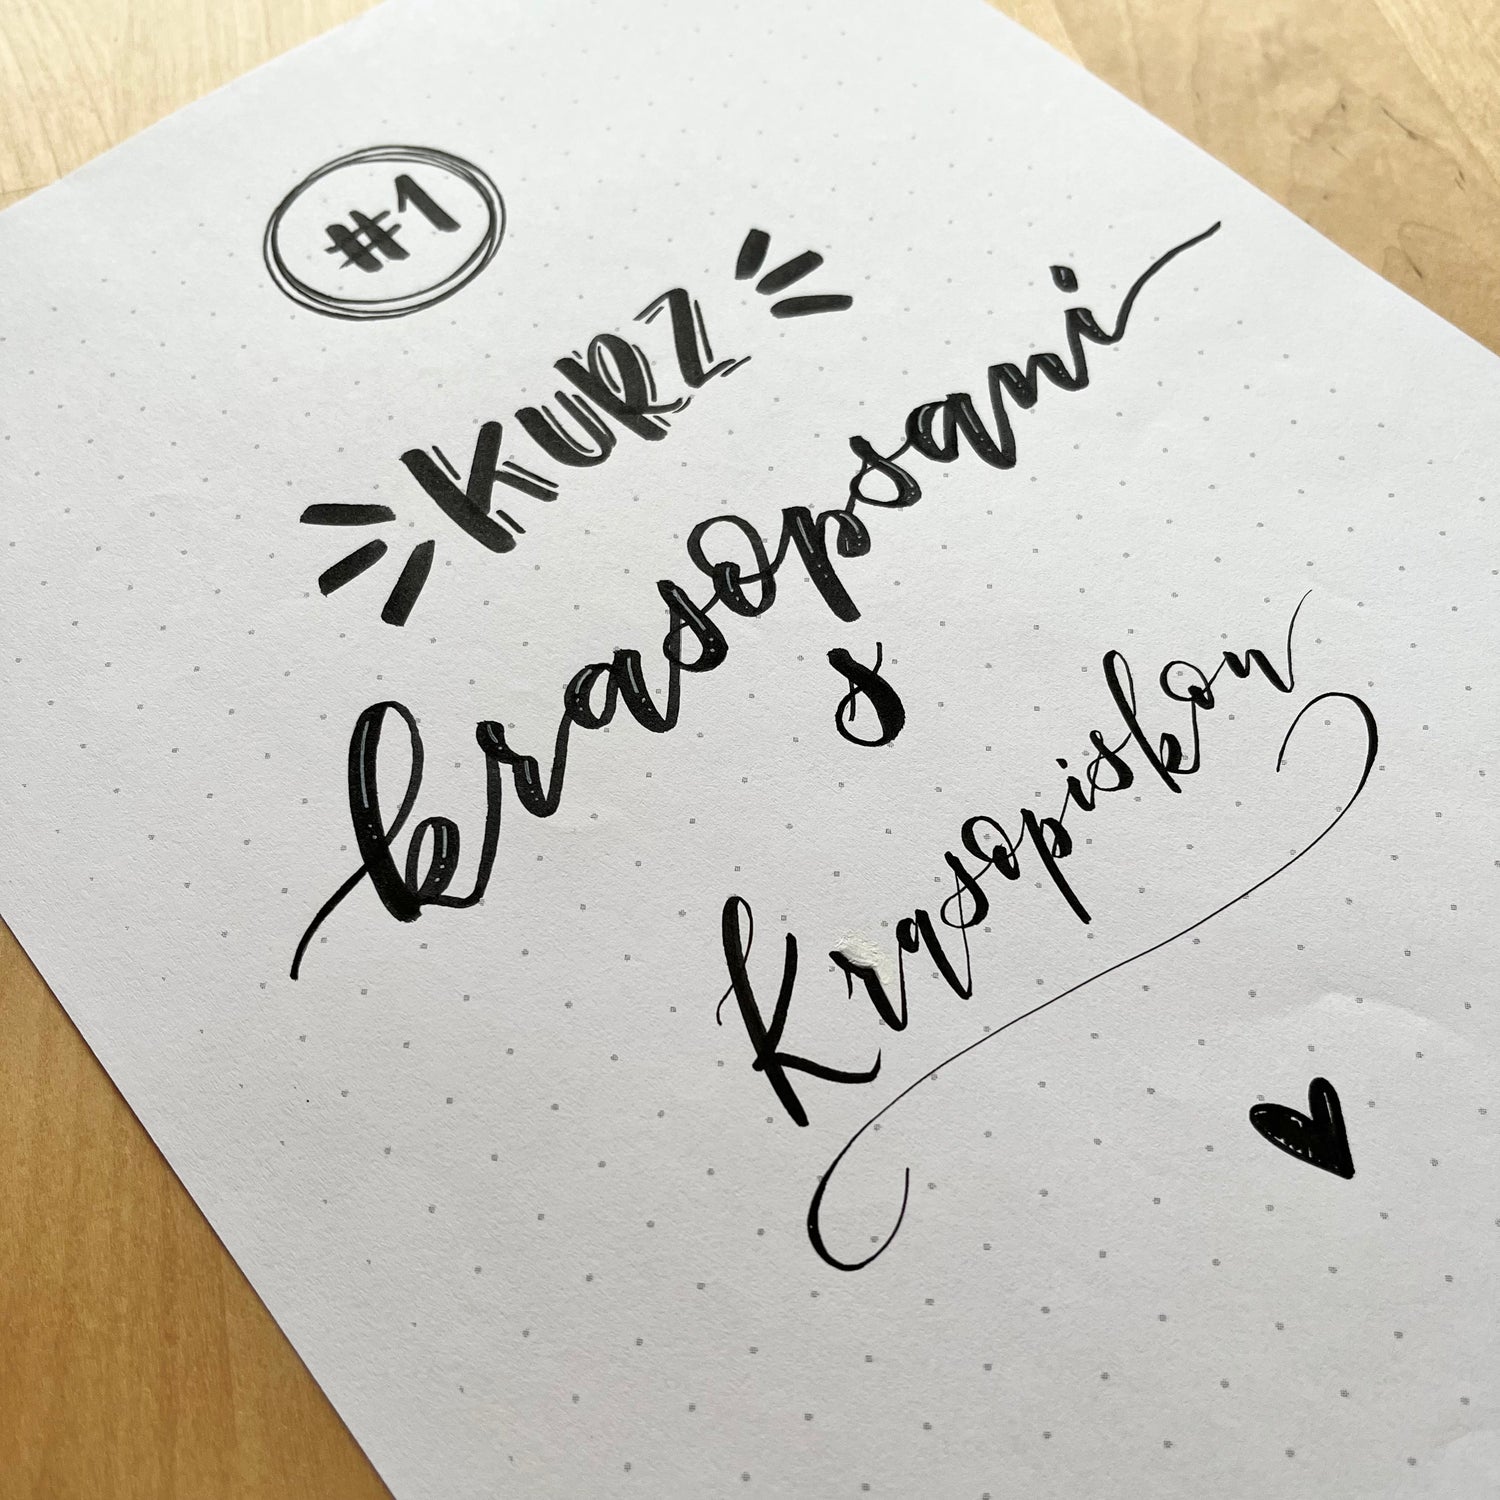 #1
KURZ
krasopsaní
s
Krasopiskou